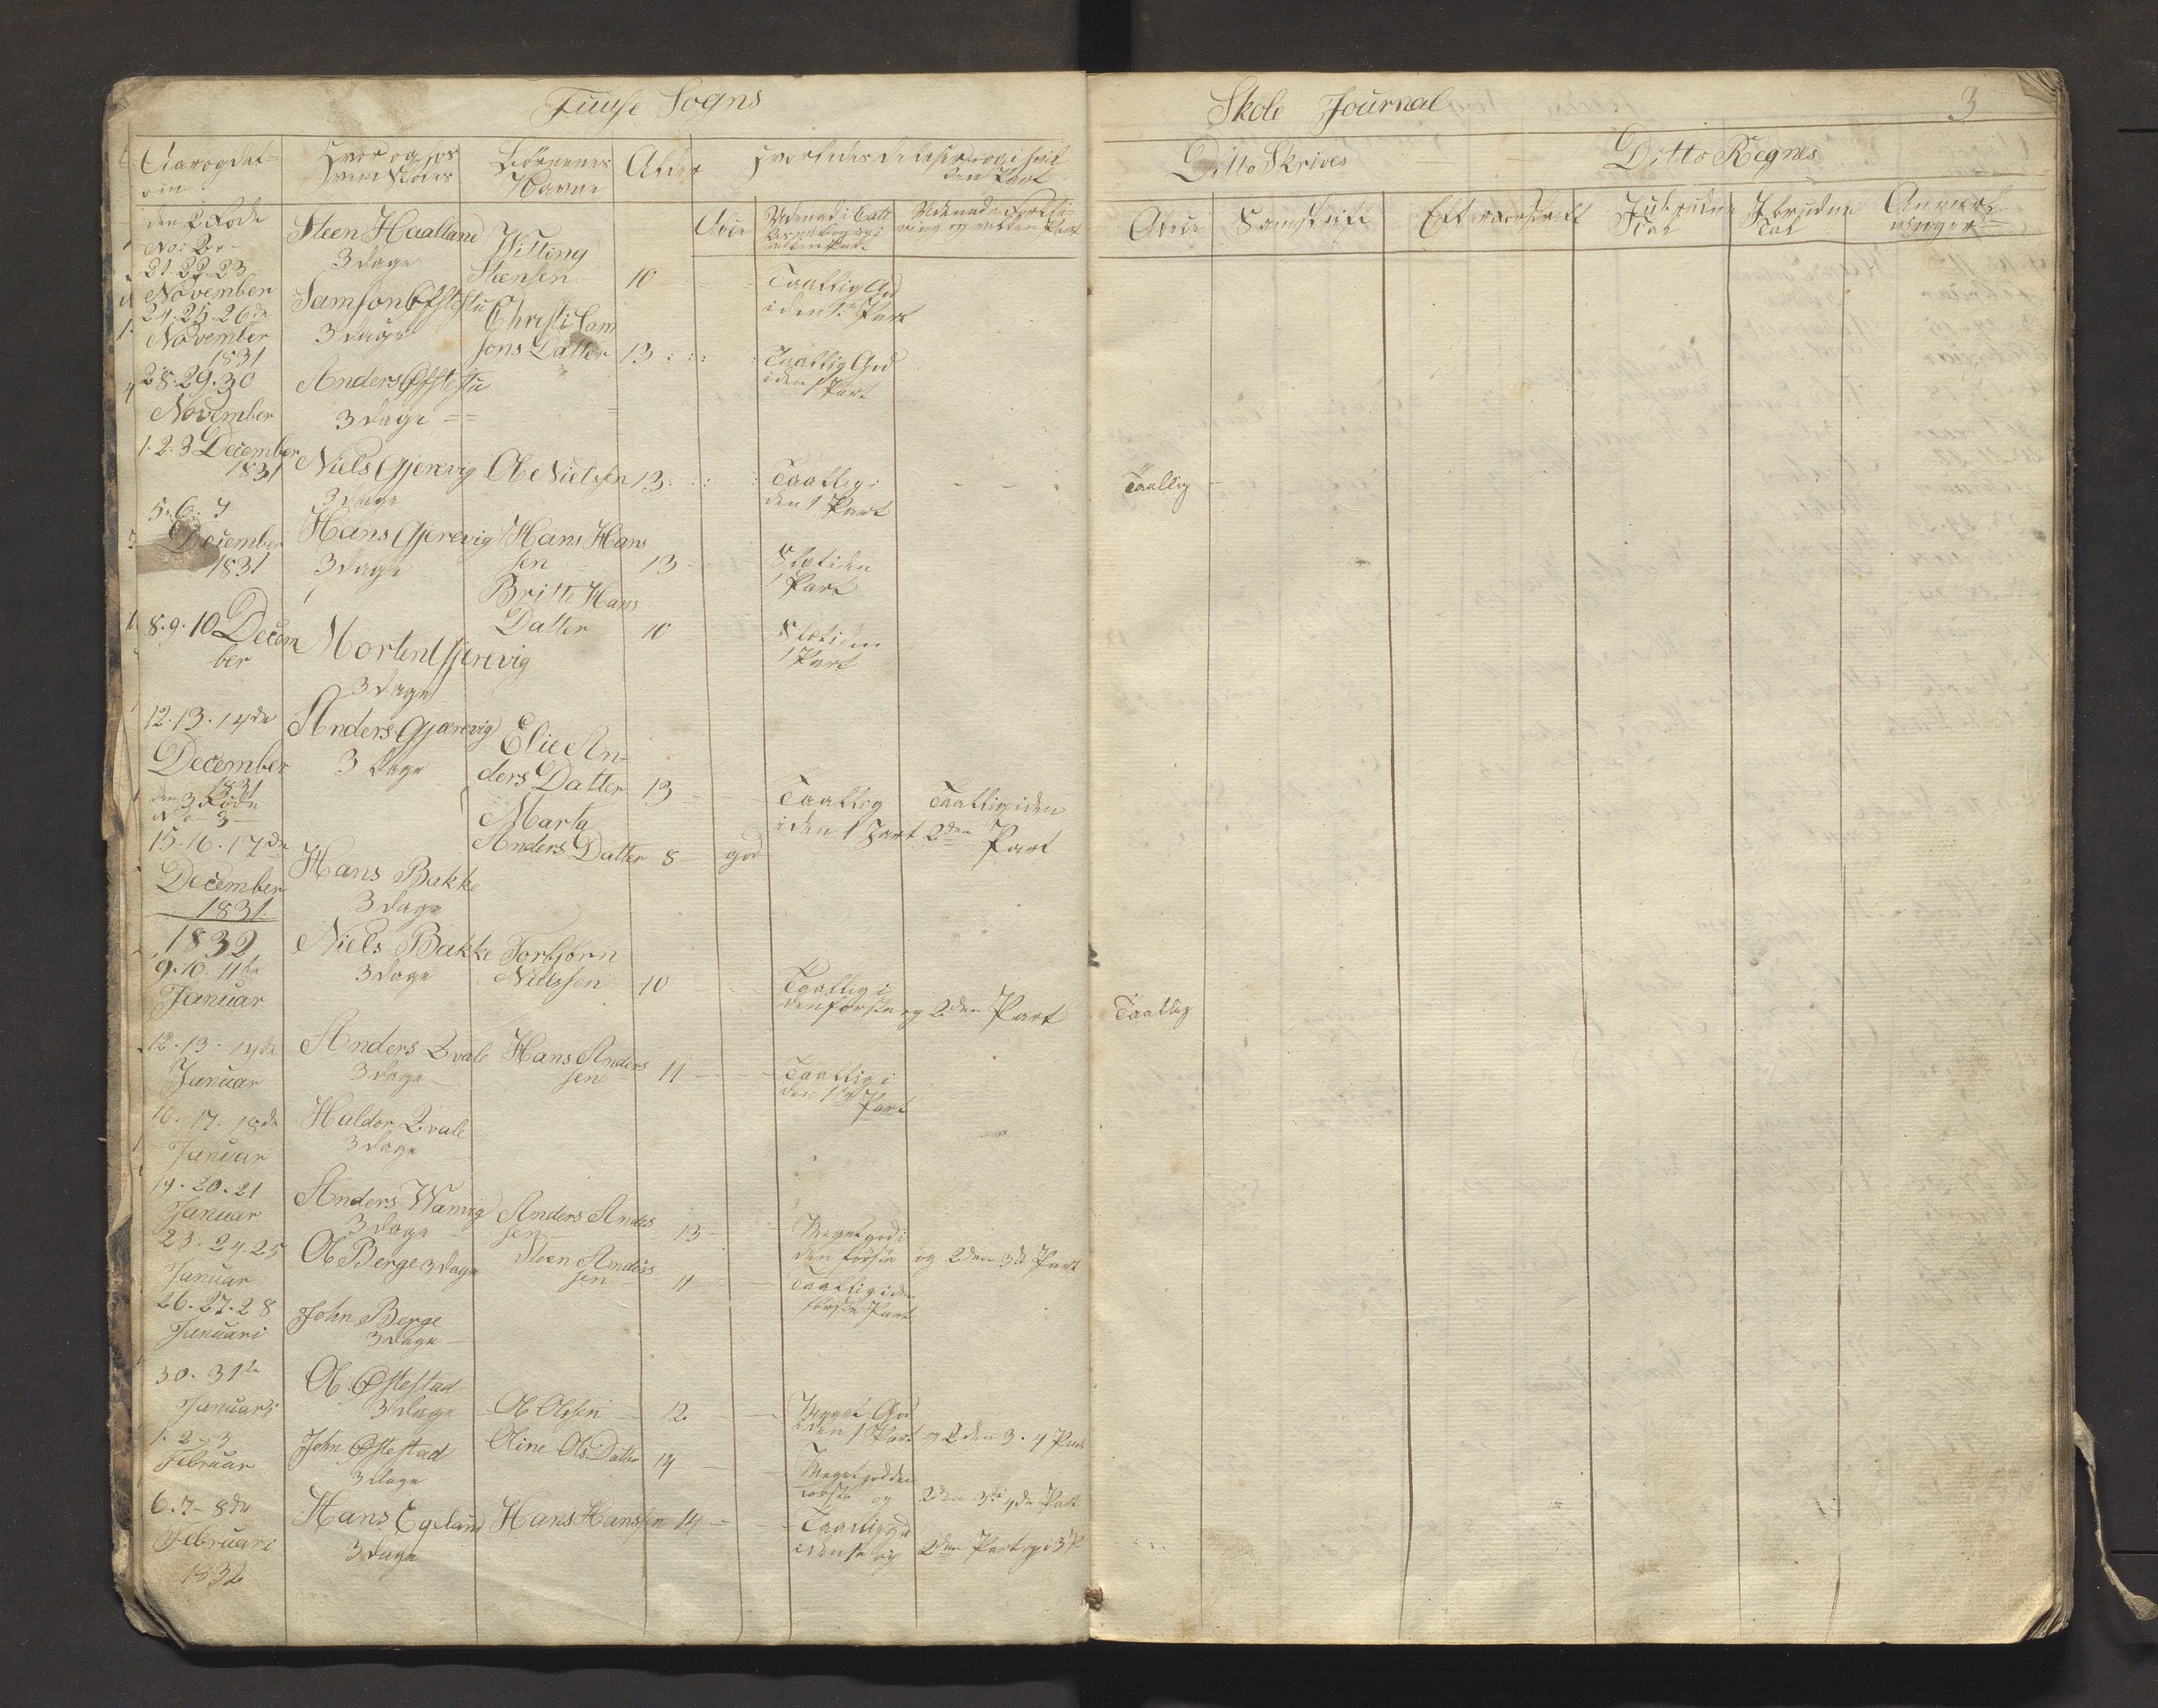 Fuuse Sogns
Aar og Dat-
um
Hvor og hos
hvem Skoles
Børnenes
Navne
Alder
den 2 Rode
No: 2
21. 22. 23
November
Steen Haalland
3 dage
Willing
Steensen 10
Taallig God
i den 1 Part
24. 25. 26de
November
1831
Samson Øfstestu
3 dage
Christi Sam
sons Datter 13
Taallig God
i den 1 Part
28. 29. 30
November
Anders Øfstestu
3 dage
1. 2. 3 December
1831
Niels Gjerevig
3 dage
Ole Nielsen 13
Taallig i
den 1 Part
Taallig
5. 6. 7
December
1831
Hans Gjerevig
3 dage
Hans Hans
sen 13
Slet i den
1 Part
Britte Hans
Datter 10
Slet i den
1 Part
8. 9. 10 Decem
ber
Morten Gjerevig
3 dage
12. 13. 14de
December
1831
Anders Gjærevig
3 dage
Elie An-
ders Datter 13
Taallig
i den 1 Part
Taallig i den
2den Part
Marta
Anders Datter 8 god
den 3 Rode
No 3
15. 16. 17de
December
1831
Hans Bakke
3 dage
1832
9. 10. 11te
Januar
Niels Bakke
3 dage
Torbjørn
Nielssen 10
Taallig i
den første og 2den Part
Taallig
12. 13. 14de
Januar
Anders Qvale
3 dage
Hans Anders
sen 11
Taallig i
den 1 Part
16. 17. 18de
Januar
Haldor Qvale
3 dage
19. 20. 21
Januar
Anders Wamvig
3 dage
Anders Anders
sen 13
Meget god i
den første og 2den 3de Part
23. 24. 25
Januar
Ole Berge 3 dage
Steen Anders
sen 11
Taallig i den
første Part
26. 27. 28
Januari
John Berge
3 dage
30. 31te
Januari
Ole Øftestad
3 dage
Ole Olssen 12
Meget God
i den 1 Part og 2den 3. 4 Part
1. 2. 3
Februar
John Øftestad
3 dage
Oline Ols Datter 14
Meget god den
første og 2den 3die 4de Part
6. 7. 8de
Februari
1832
Hans Egeland
3 dage
Hans Hanssen 14
Taallig god
i den 1ste og 2den Part og i 3 P
Skole Journal
3
Ditto Skrives
Ditto Regnes
Samskrift
Efter Forskrift